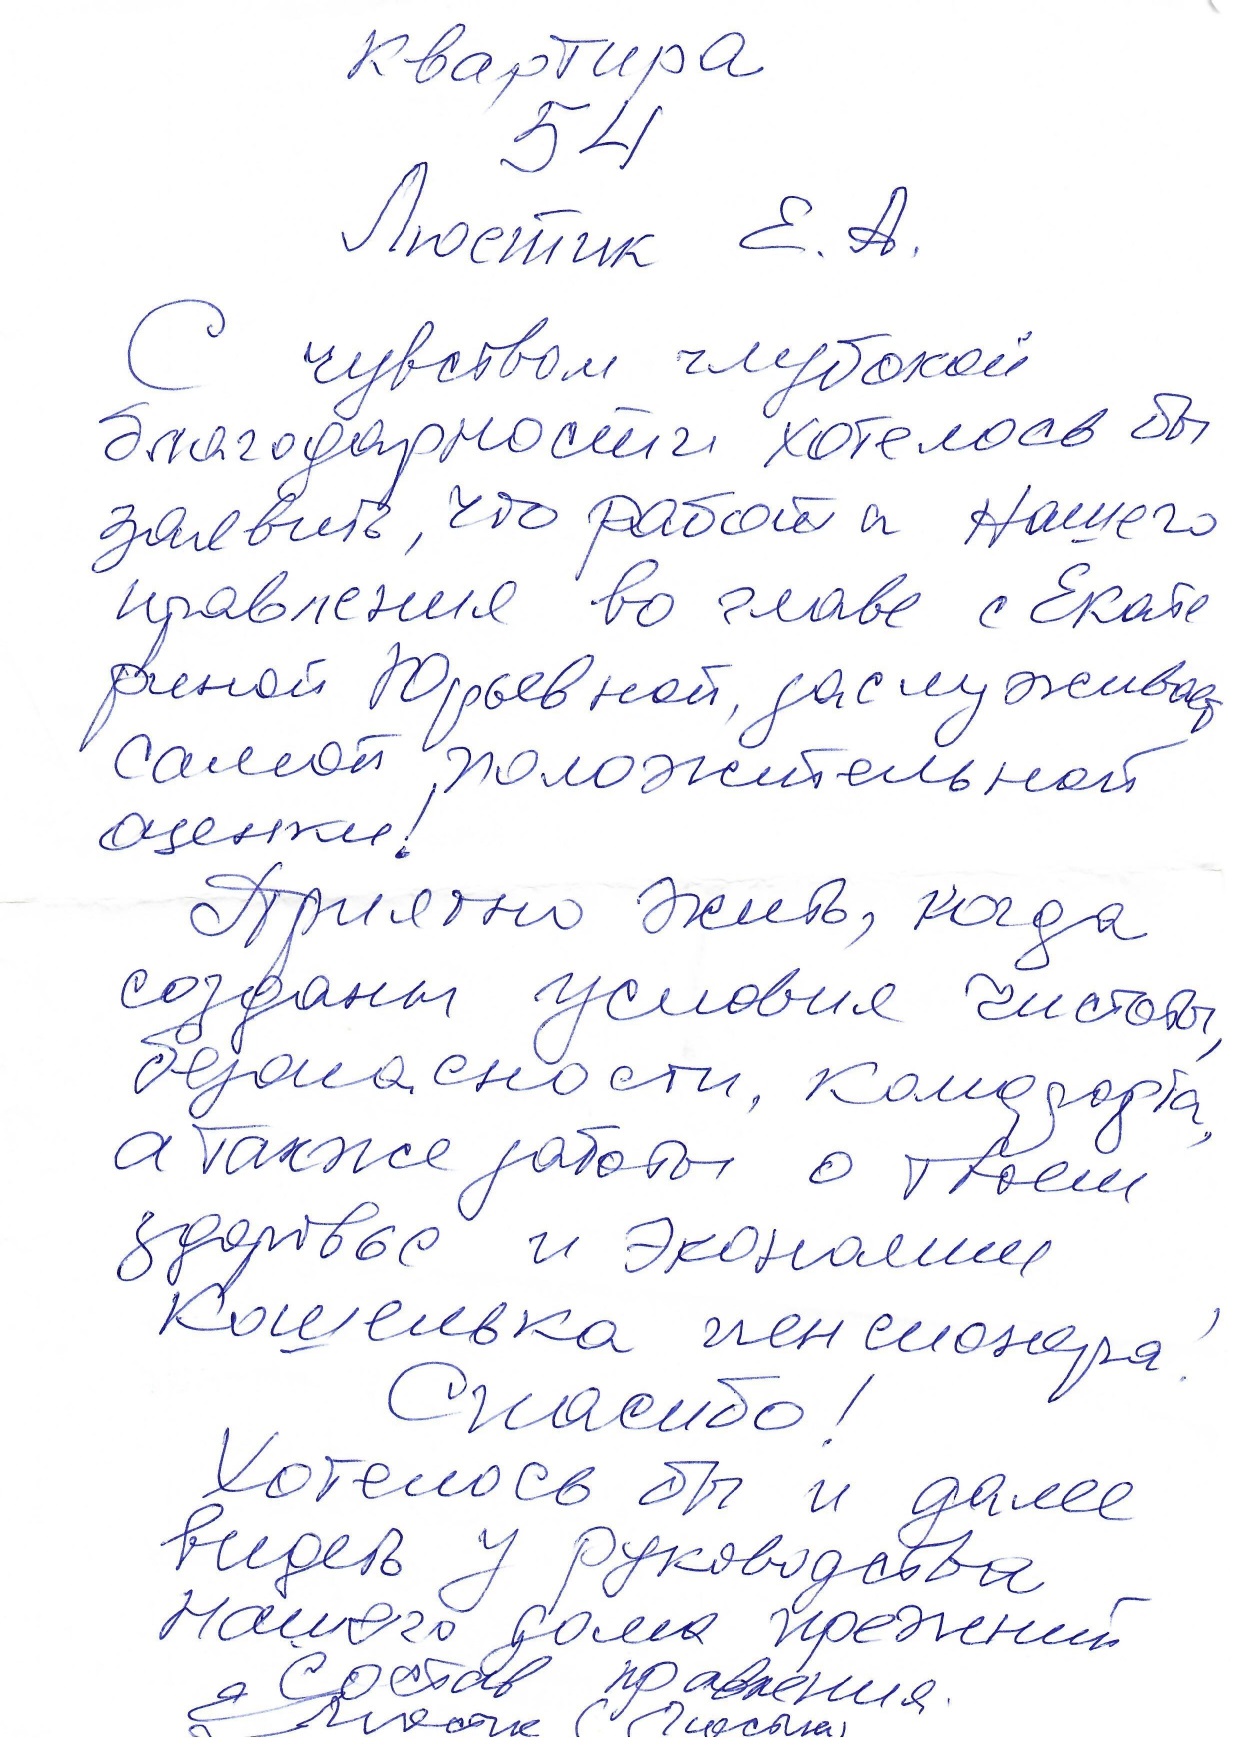 квартира
54
Люстик Е. А.
С чувством глубокой
благодарности хотелось бы
заявить, что работа Нашего
правления во главе с Екате
риной Юрьевной, заслуживает
самой положительной
оценки!
Приятно жить, когда
созданы условия чистоты,
безопасности, комфорта,
а также заботы о твоем
здоровье и экономии
кошелька пенсионера!
Спасибо!
Хотелось бы и далее
видеть у руководства
нашего дома прежний
Состав правления.
Люстик (Люстик)